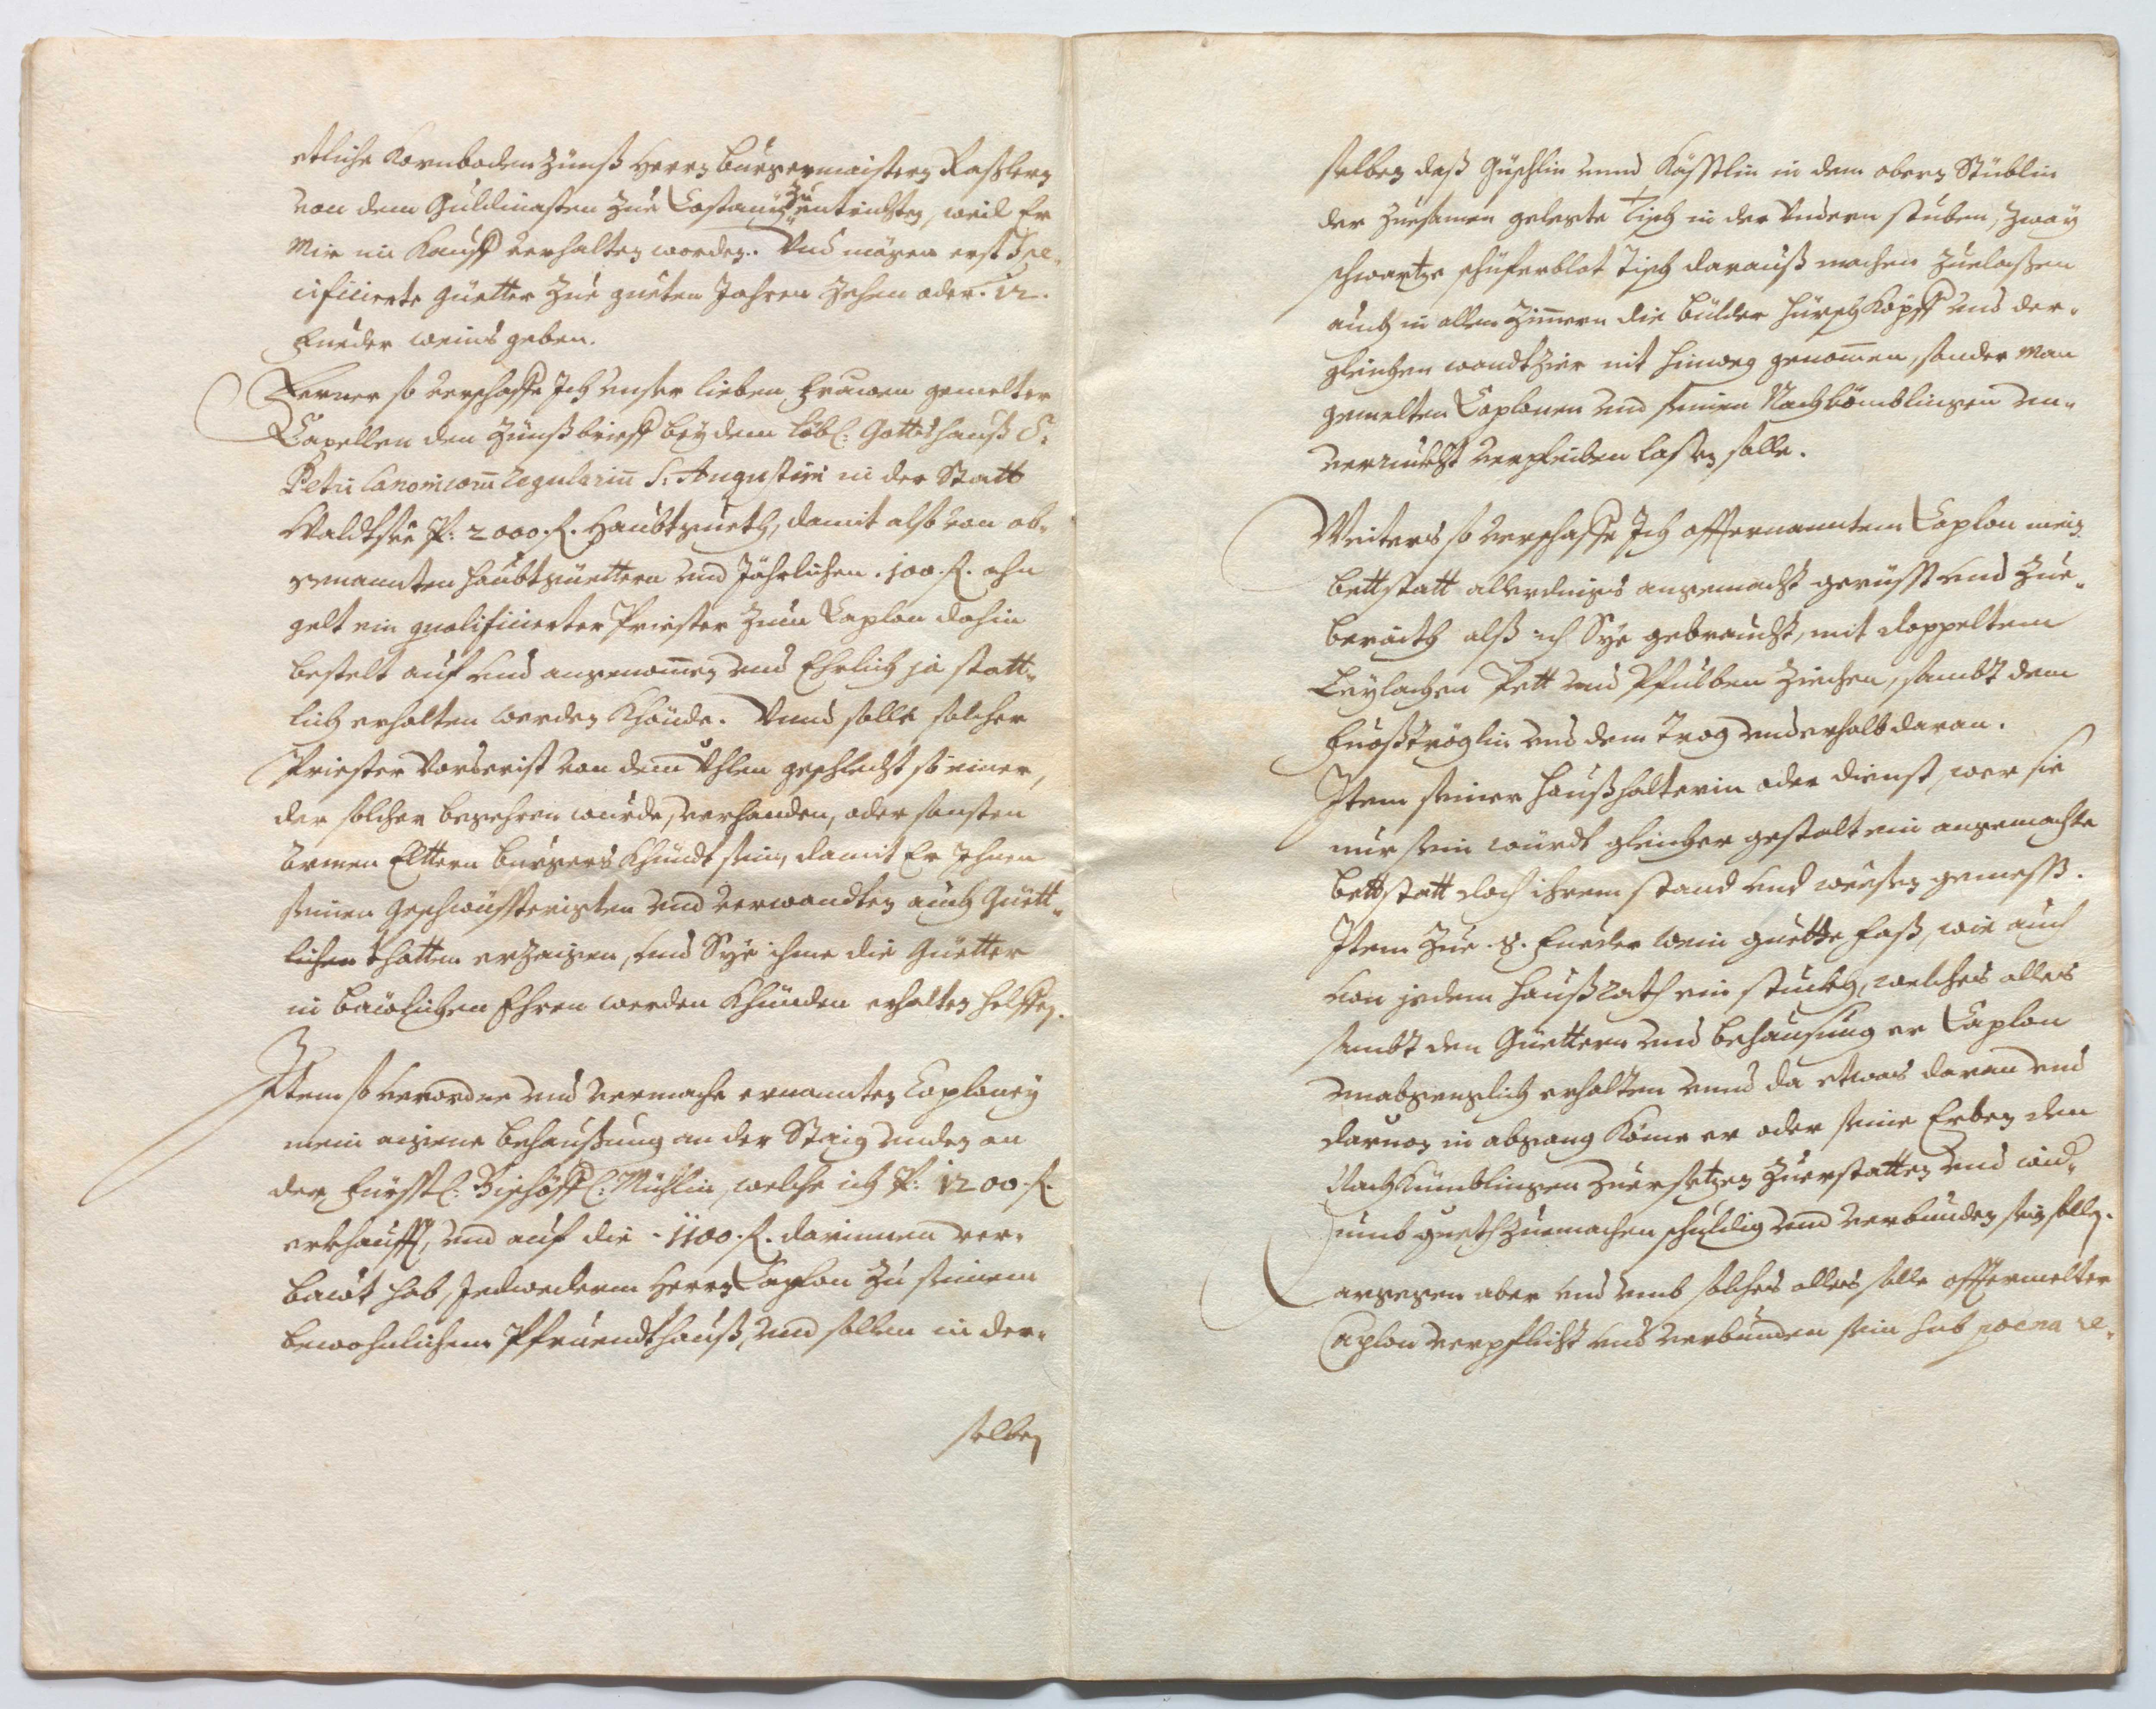 etliche Kornboden Zünß Herrn Burgermaistern Raßlern
von dem Guldinasten zue Costantz zu entrichten, weil Er
Mir im Kauff verhalten worden. Und mögen erst Spe-
cificierte güetter zue gueten Jahren Zehen oder .12.
Fueder weins geben.
Ferner so verschaffe Ich unser lieben Frawen gemelter
Capellen den Zünßbrieff bey dem löbl: Gottshauß S.
Petri Canonicorum Regularium S. Augustini in der Statt
Waldtsee P: 2000. f. Haubtgueth, damit also von ob-
genannten haubtgüettern und Jährlichen .100. f. ahn
gelt ein qualificierter Priester zum Caplon dahin
bestelt auf und angenommen und Ehrlich ja statt-
lich erhalten werden Khönde. Unnd solle solcher
Priester Vorderist von dem Uhlen geschlecht so einer,
der solcher begehren wurde, verhanden, oder sonsten
armen Elttern burgers Khündt sein, damit Er Ihnen
seinen geschwüsterigten und verwandten auch Guett-
lichen thatten erzaigen, und Sye ihme die Güetter
in bäwlichen Ehren werden Khünden erhalten helffen.
Item so verordne und vermache ernannter Caploney
mein aigene behaußung an der Staig unden an
der Fürstl: Bischöffl: Mühlin, welche ich P: 1200. f.
erkhaufft, und auf die .1100. f. darinnen ver-
bawt hab, Jedwederem Herrn Caplon zu seinem
bewohnlichem Pfruendthauß, und sollen in der-
selben
selben daß Güschlin unnd Kästlin in dem obern Stüblin
der zuesamen gelegte Tisch in der Undern stuben, zway
schwartze schüferblat Tisch darauß machen zuelaßen
auch in allen Zimmern die bülder hürsch Köpff und der-
gleichen wandtzier nit hinweg genommen, sonder man
gemelten Caplonen und seinen Nachkömblingen un-
verruckht verpleiben laßen solle.
Weiters so verschaffe Ich offternanntem Caplon mein
bettstatt allerdings angemacht gerüst und zue-
beraith alß ich Sye gebraucht, mit doppeltem
Leylachen Pett und Pfulben Ziechen, sambt dem
Fuoßtröglin und dem Trog underhalb daran.
Item seiner Haußhalterin oder dienst, wer sie
nur sein würdt gleicher gestalt ein angemachte
bettstatt doch ihrem stand und weesen gemeß.
Item zue .8. Fueder Wein guette faß, wie auch
von jedem haußrath ein stuckh, welches alles
sambt den Güettern und behausung er Caplon
unabgenglich erhalten unnd da etwas daran und
darvon in abgang Köme er oder seine Erben den
Nachkümblingen zuersetzen zuerstatten und wid-
umb gueth zuemachen schuldig und verbunden sein sollen.
Dargegen aber und umb solches alles solle offtermelter
Caplon verpflicht und verbunden sein sub poena re-